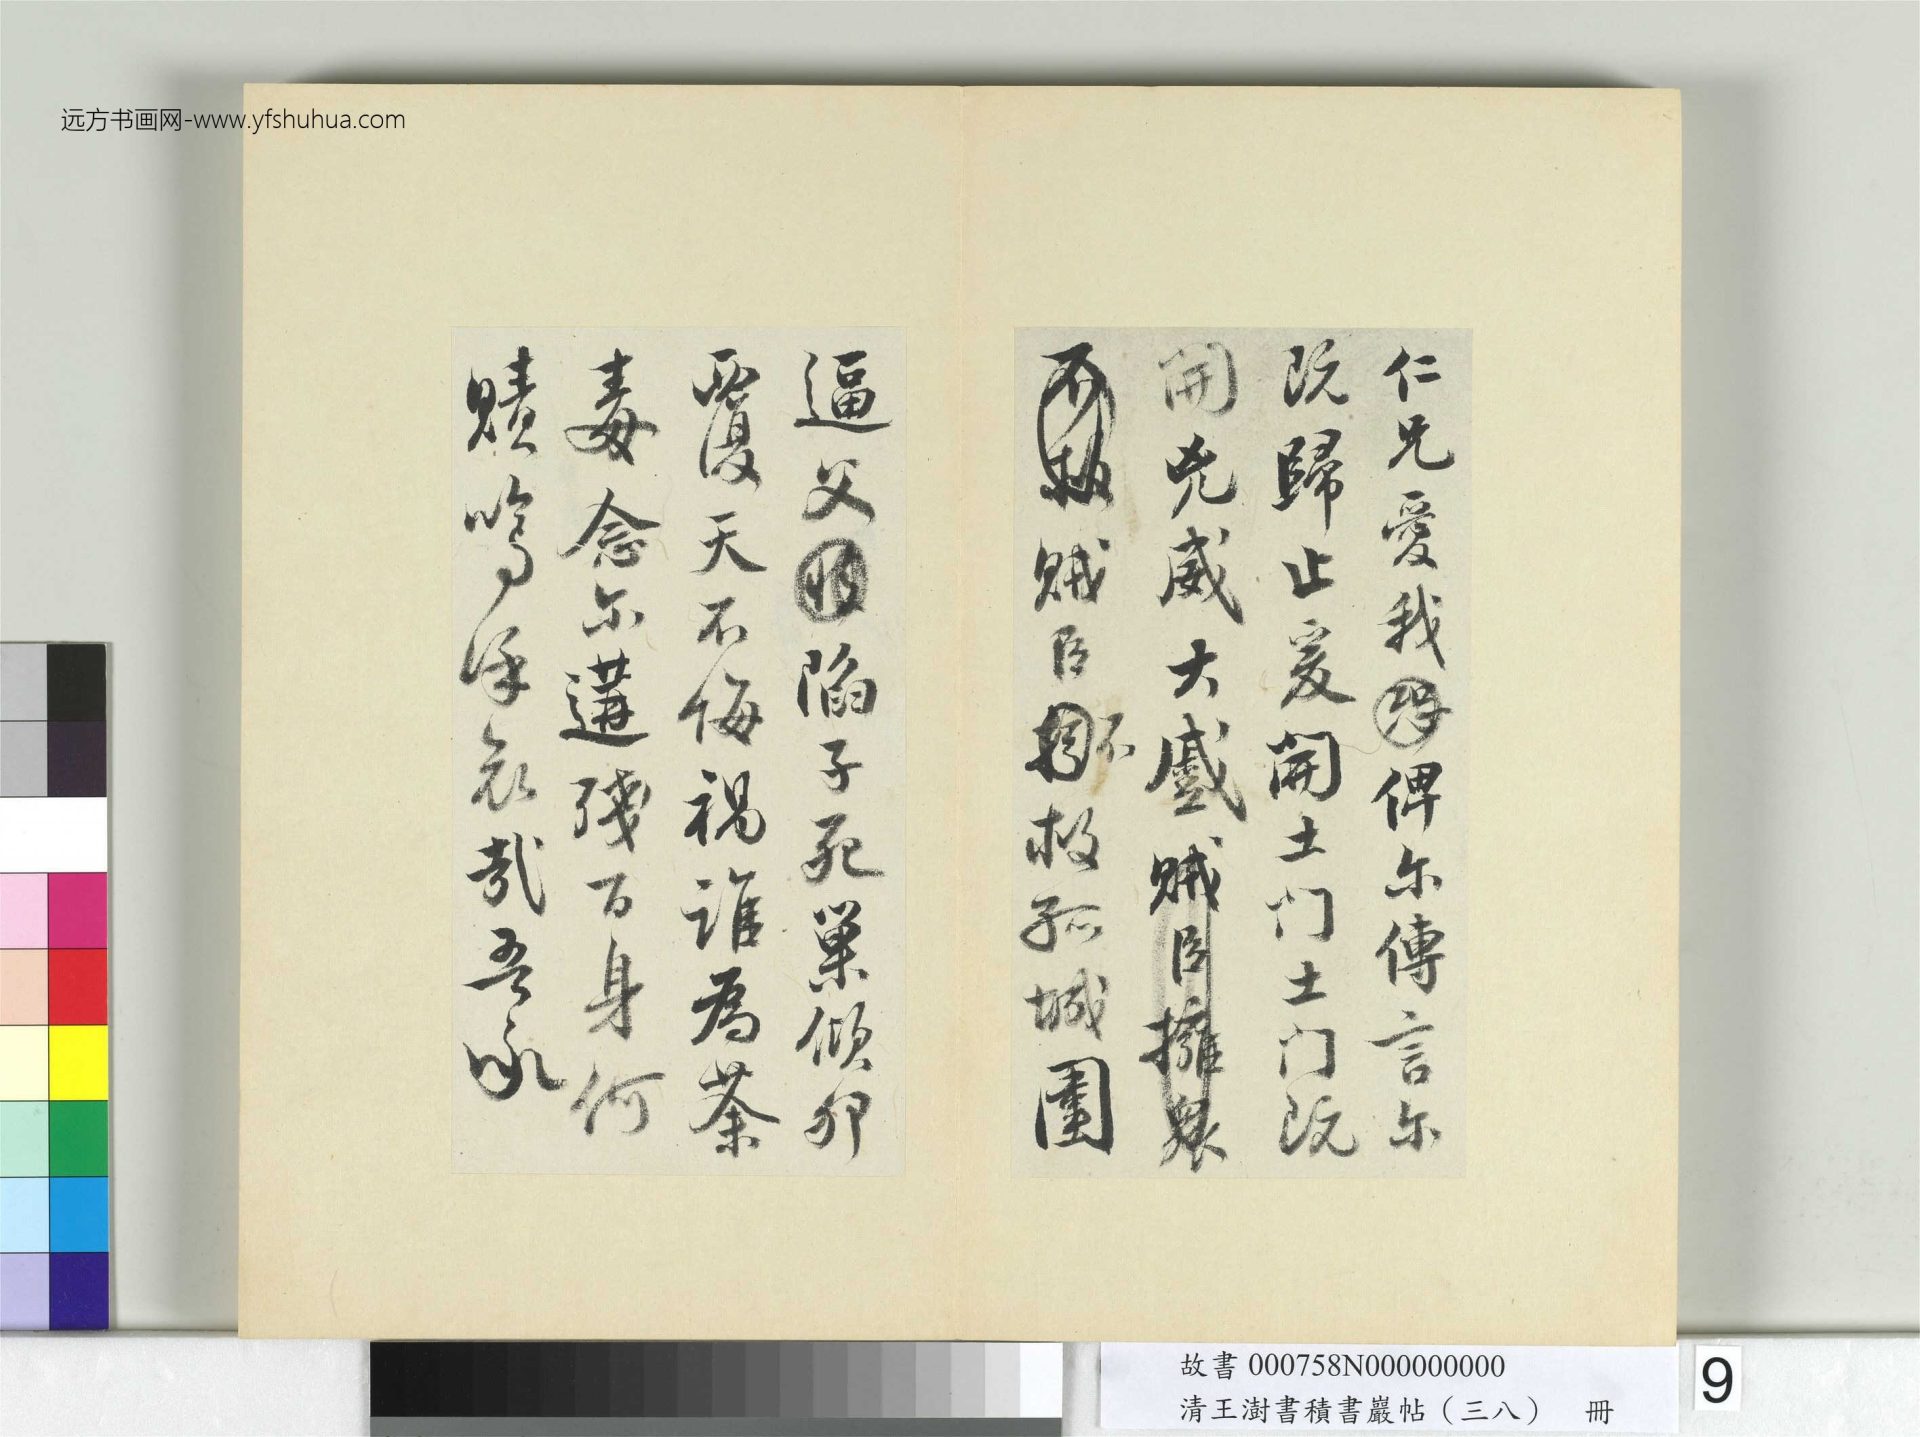 远方书画网-www.yfshuhua.com
仁兄愛我俾尔傳言尔
既歸止爰開土门土门既
開兇威大蹙賊臣擁衆
不救賊臣不救孤城圍
逼父陷子死巢傾卵
覆天不悔禍誰為荼
毒念尔遘殘百身何
贖嗚呼哀哉吾承
故書 000758N000000000
清王澍書積書巖帖（三八） 冊
9